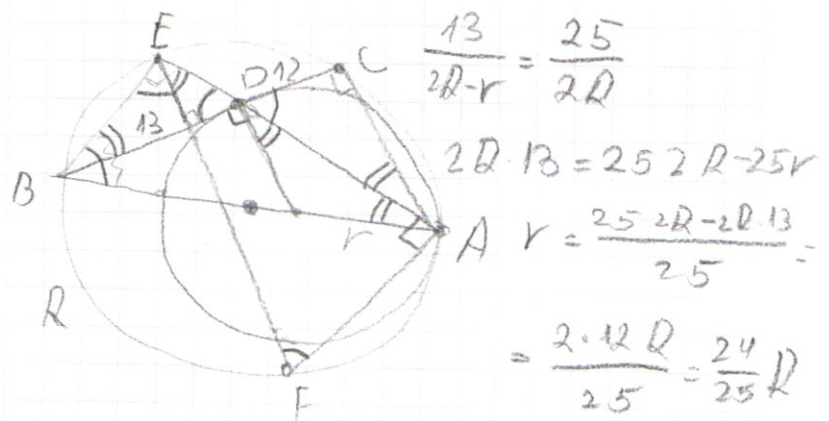 E
D 12 C
13
B
r
A
R
F
13/(2R-r) = 25/2R
2R·13 = 25 2R - 25r
r = (25·2R - 2R·13)/25 =
= (2·12R)/25 = 24/25 R